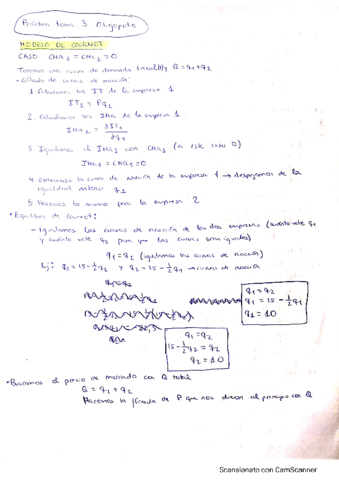 Práctica tema 3 Oligopolio
MODELO DE COURNOT
CASO CMA1 = CMA2 = 0
Tenemos una curva de demanda lineal(P) y Q = q1 + q2
• Cálculo de curvas de reacción:
1. Calculamos los IT de la empresa 1
IT1 = P q1
2. Calculamos los IMa de la empresa 1
IMa1 = ∂IT1 / ∂q1
3. Igualamos el IMa1 con CMa1 (en este caso 0)
IMa1 = CMa1 = 0
4. Obtenemos la curva de reacción de la empresa 1 → despejamos de la
igualdad anterior q1
5. Hacemos lo mismo para la empresa 2
• Equilibrio de Cournot:
- Igualamos las curvas de reacción de las dos empresas (cuánto vale q1
y cuánto vale q2 para que las curvas sean iguales)
q1 = q2 (igualamos las curvas de reacción)
Ej: q1 = 15 - 1/2 q2 y q2 = 15 - 1/2 q1 → curvas de reacción
q1 = q2
q1 = 15 - 1/2 q1
q2 = 10
q1 = q2
15 - 1/2 q2 = q2
q2 = 10
• Buscamos el precio de mercado con Q total
Q = q1 + q2
Hacemos la fórmula de P que nos dieron al principio con Q
Scansionato con CamScanner